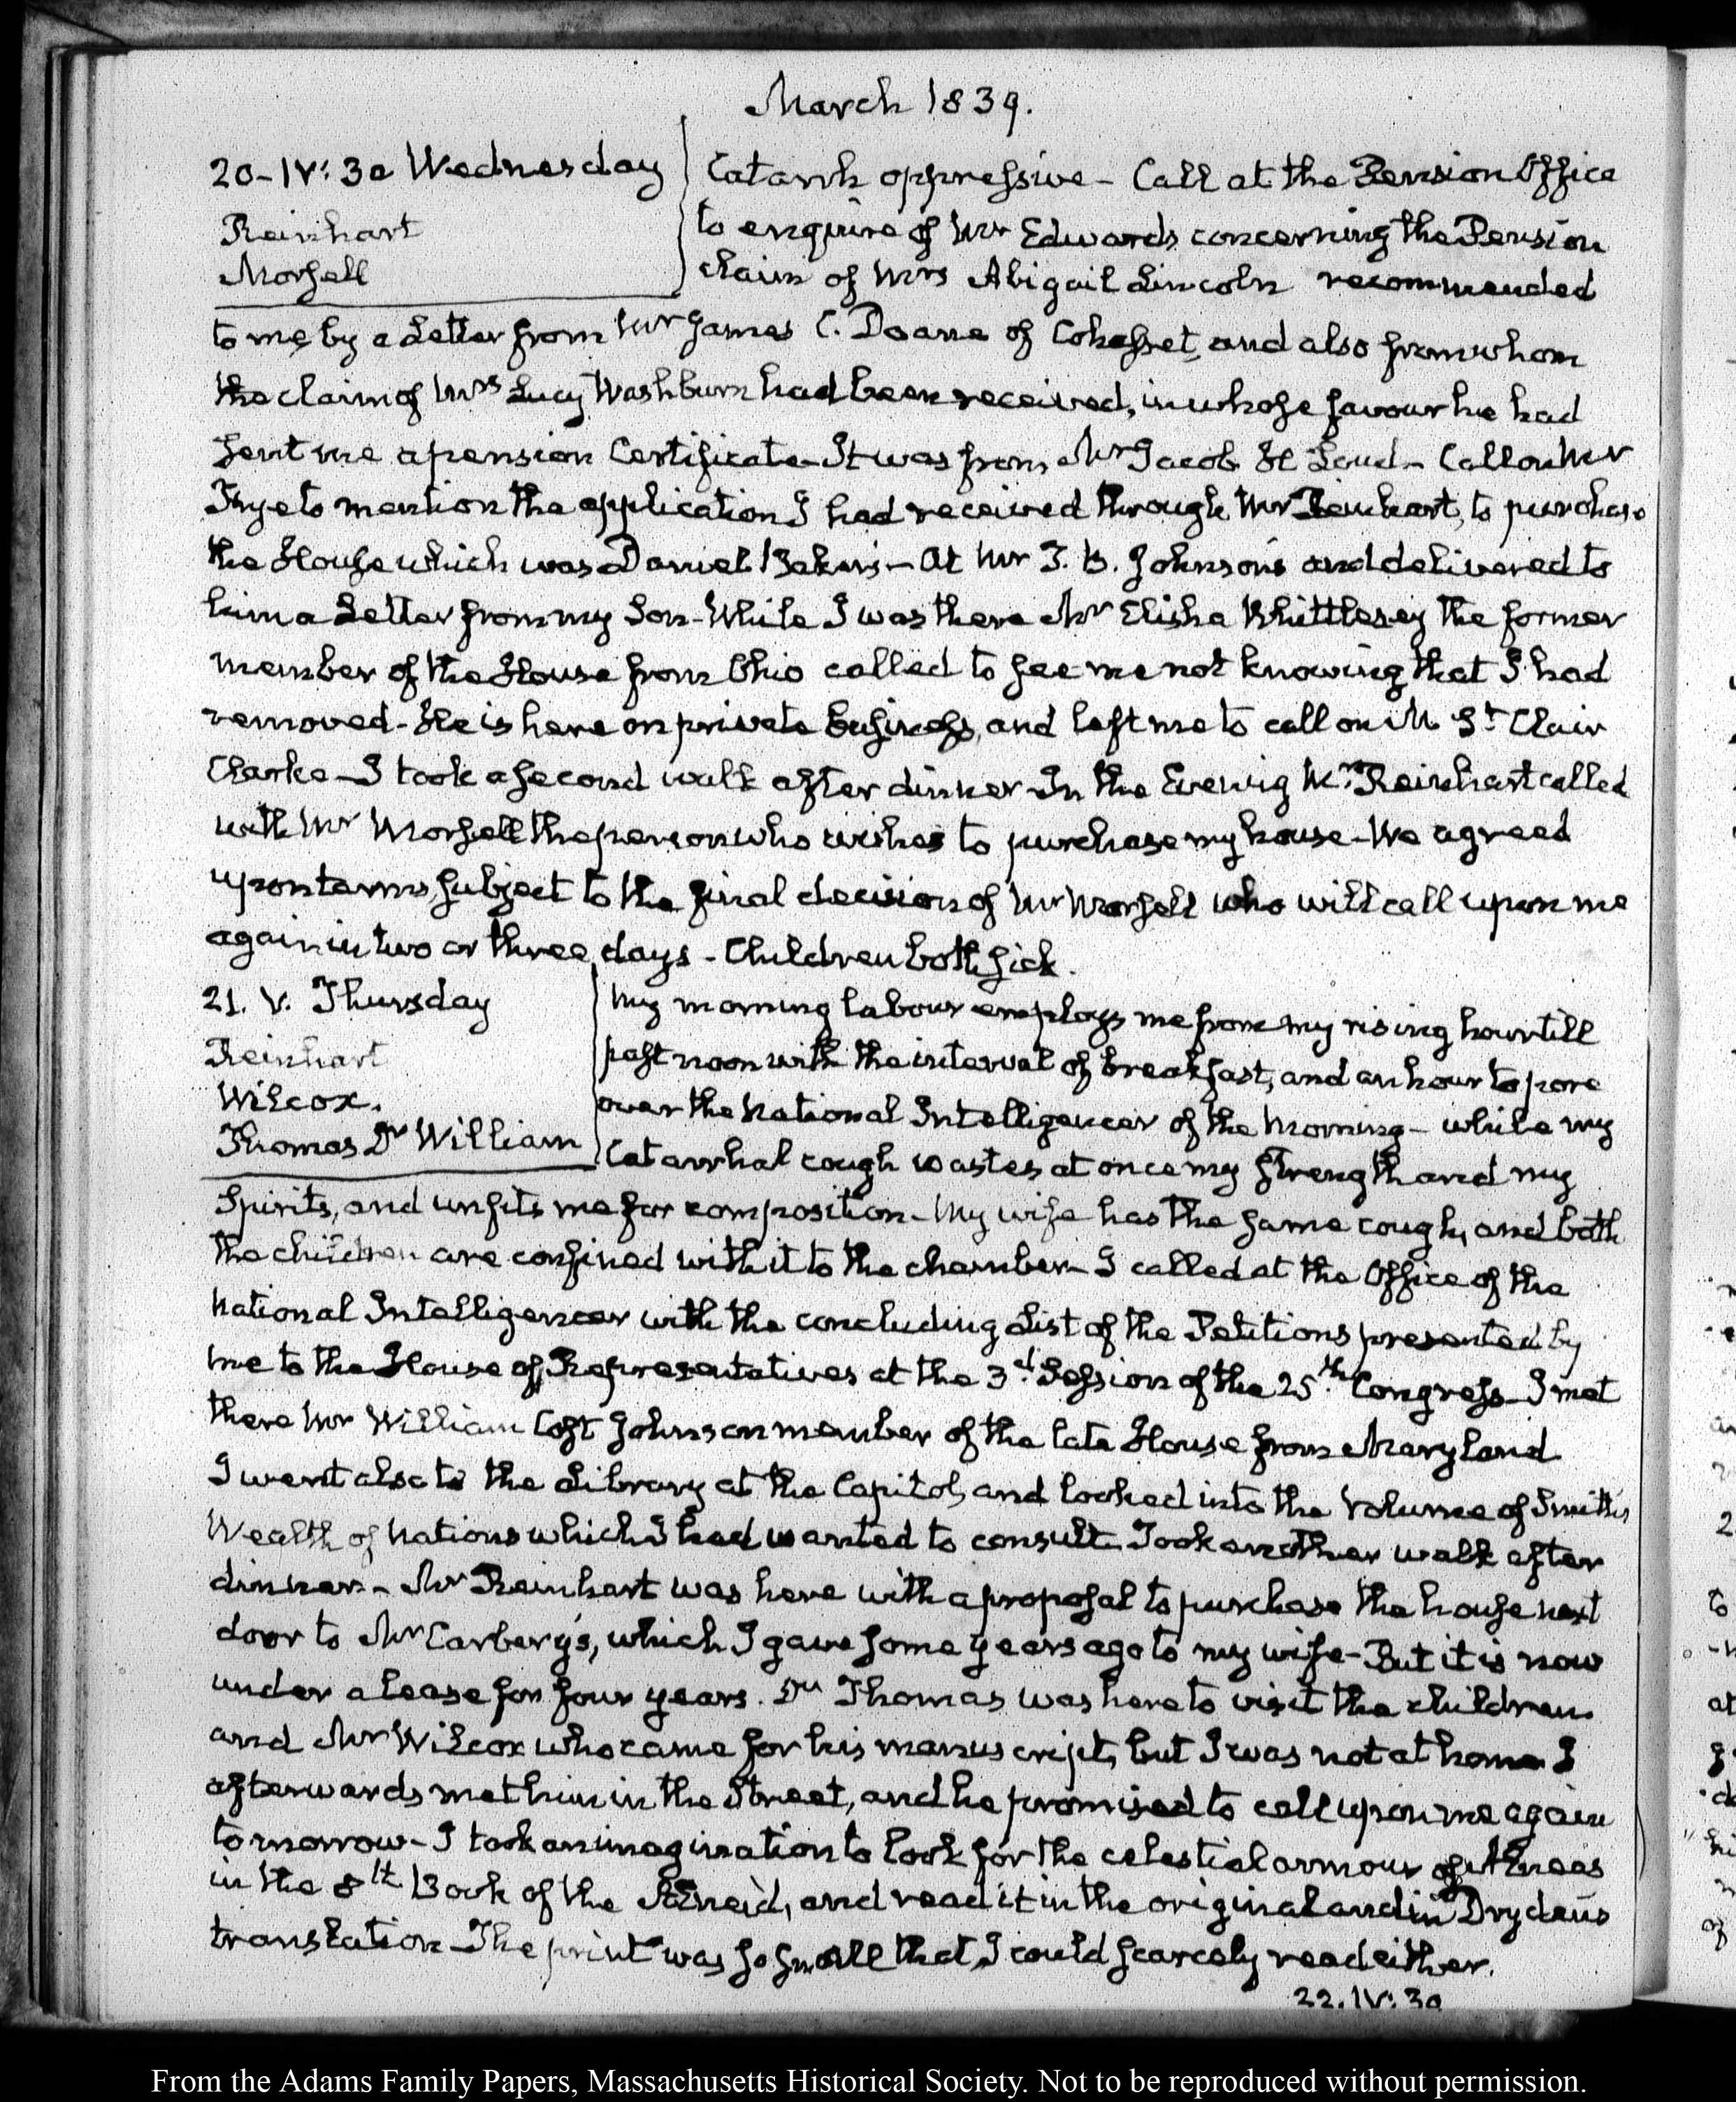 March 1839.
20–IV:30 Wednesday
Reinhart
Morsell
Catarrh oppressive – Call at the Pension Office
to enquire of Mr Edwards concerning the Pension
claim of Mrs Abigail Lincoln recommended
to me by a Letter from Mr James C. Doane of Cohasset, and also from whom
the claim of Mrs Lucy Washburn had been received, in whose favour he had
sent me a pension Certificate – It was from Mr Jacob H Loud – Call on Mr
Frye to mention the application I had received through Mr Reinhart, to purchase
the House which was Daniel Baker's – At Mr J. B. Johnson's and delivered to
him a Letter from my Son – While I was there Mr Elisha Whittlesey the former
member of the House from Ohio called to see me not knowing that I had
removed – He is here on private business, and left me to call on M St Clair
Clarke – I took a second walk after dinner – In the Evenig Mr Reinhart called
with Mr Morsell the person who wishes to purchase my house – We agreed
upon terms, subject to the final decision of Mr Morsell who will call upon me
again in two or three days – Children both sick.
21. V. Thursday
Reinhart
Wilcox.
Thomas Dr William
My morning labour employs me from my rising hour till
past noon with the interval of breakfast, and an hour to pore
over the National Intelligencer of the Morning – while my
Catarrhal cough wastes at once my strength and my
Spirits, and unfits me for composition – My wife has the same cough, and both
the children are confined with it to the chamber – I called at the Office of the
National Intelligencer with the concluding List of the Petitions presented by
me to the House of Representatives at the 3d Session of the 25th Congress – I met
there Mr William Cost Johnson member of the late House from Maryland
I went also to the Library at the Capitol, and looked into the Volume of Smith's
Wealth of Nations which I had wanted to consult. Took another walk after
dinner – Mr Reinhart was here with a proposal to purchase the house next
door to Mr Carbery's, which I gave some years ago to my wife – But it is now
under a lease for four years. Dr Thomas was here to visit the children
and Mr Wilcox who came for his manuscript, but I was not at home I
afterwards met him in the Street, and he promised to call upon me again
to morrow – I took an imagination to look for the celestial armour of Æneas
in the 8th Book of the Æneid, and read it in the original and in Dryden's
translation – The print was so small that I could scarcely read either.
22. IV:30
From the Adams Family Papers, Massachusetts Historical Society. Not to be reproduced without permission.